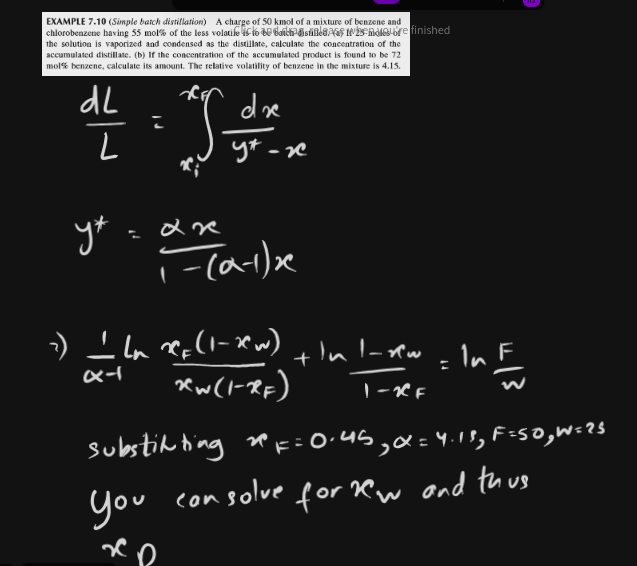 EXAMPLE 7.10 (Simple batch distillation) A charge of 50 kmol of a mixture of benzene and
chlorobenzene having 55 mol% of the less volatile is to be batch-distilled. (a) If 25 moles of
Click and drag, release when you're finished
the solution is vaporized and condensed as the distillate, calculate the concentration of the
accumulated distillate. (b) If the concentration of the accumulated product is found to be 72
mol% benzene, calculate its amount. The relative volatility of benzene in the mixture is 4.15.
dL/L = ∫_{x_i}^{x_F} dx/(y* - x)
y* = αx/(1-(α-1)x)
⇒) 1/(α-1) ln x_F(1-x_W)/(x_W(1-x_F)) + ln (1-x_W)/(1-x_F) = ln F/W
substituting x_F=0.45, α=4.15, F=50, W=25
you can solve for x_W and thus
x_D